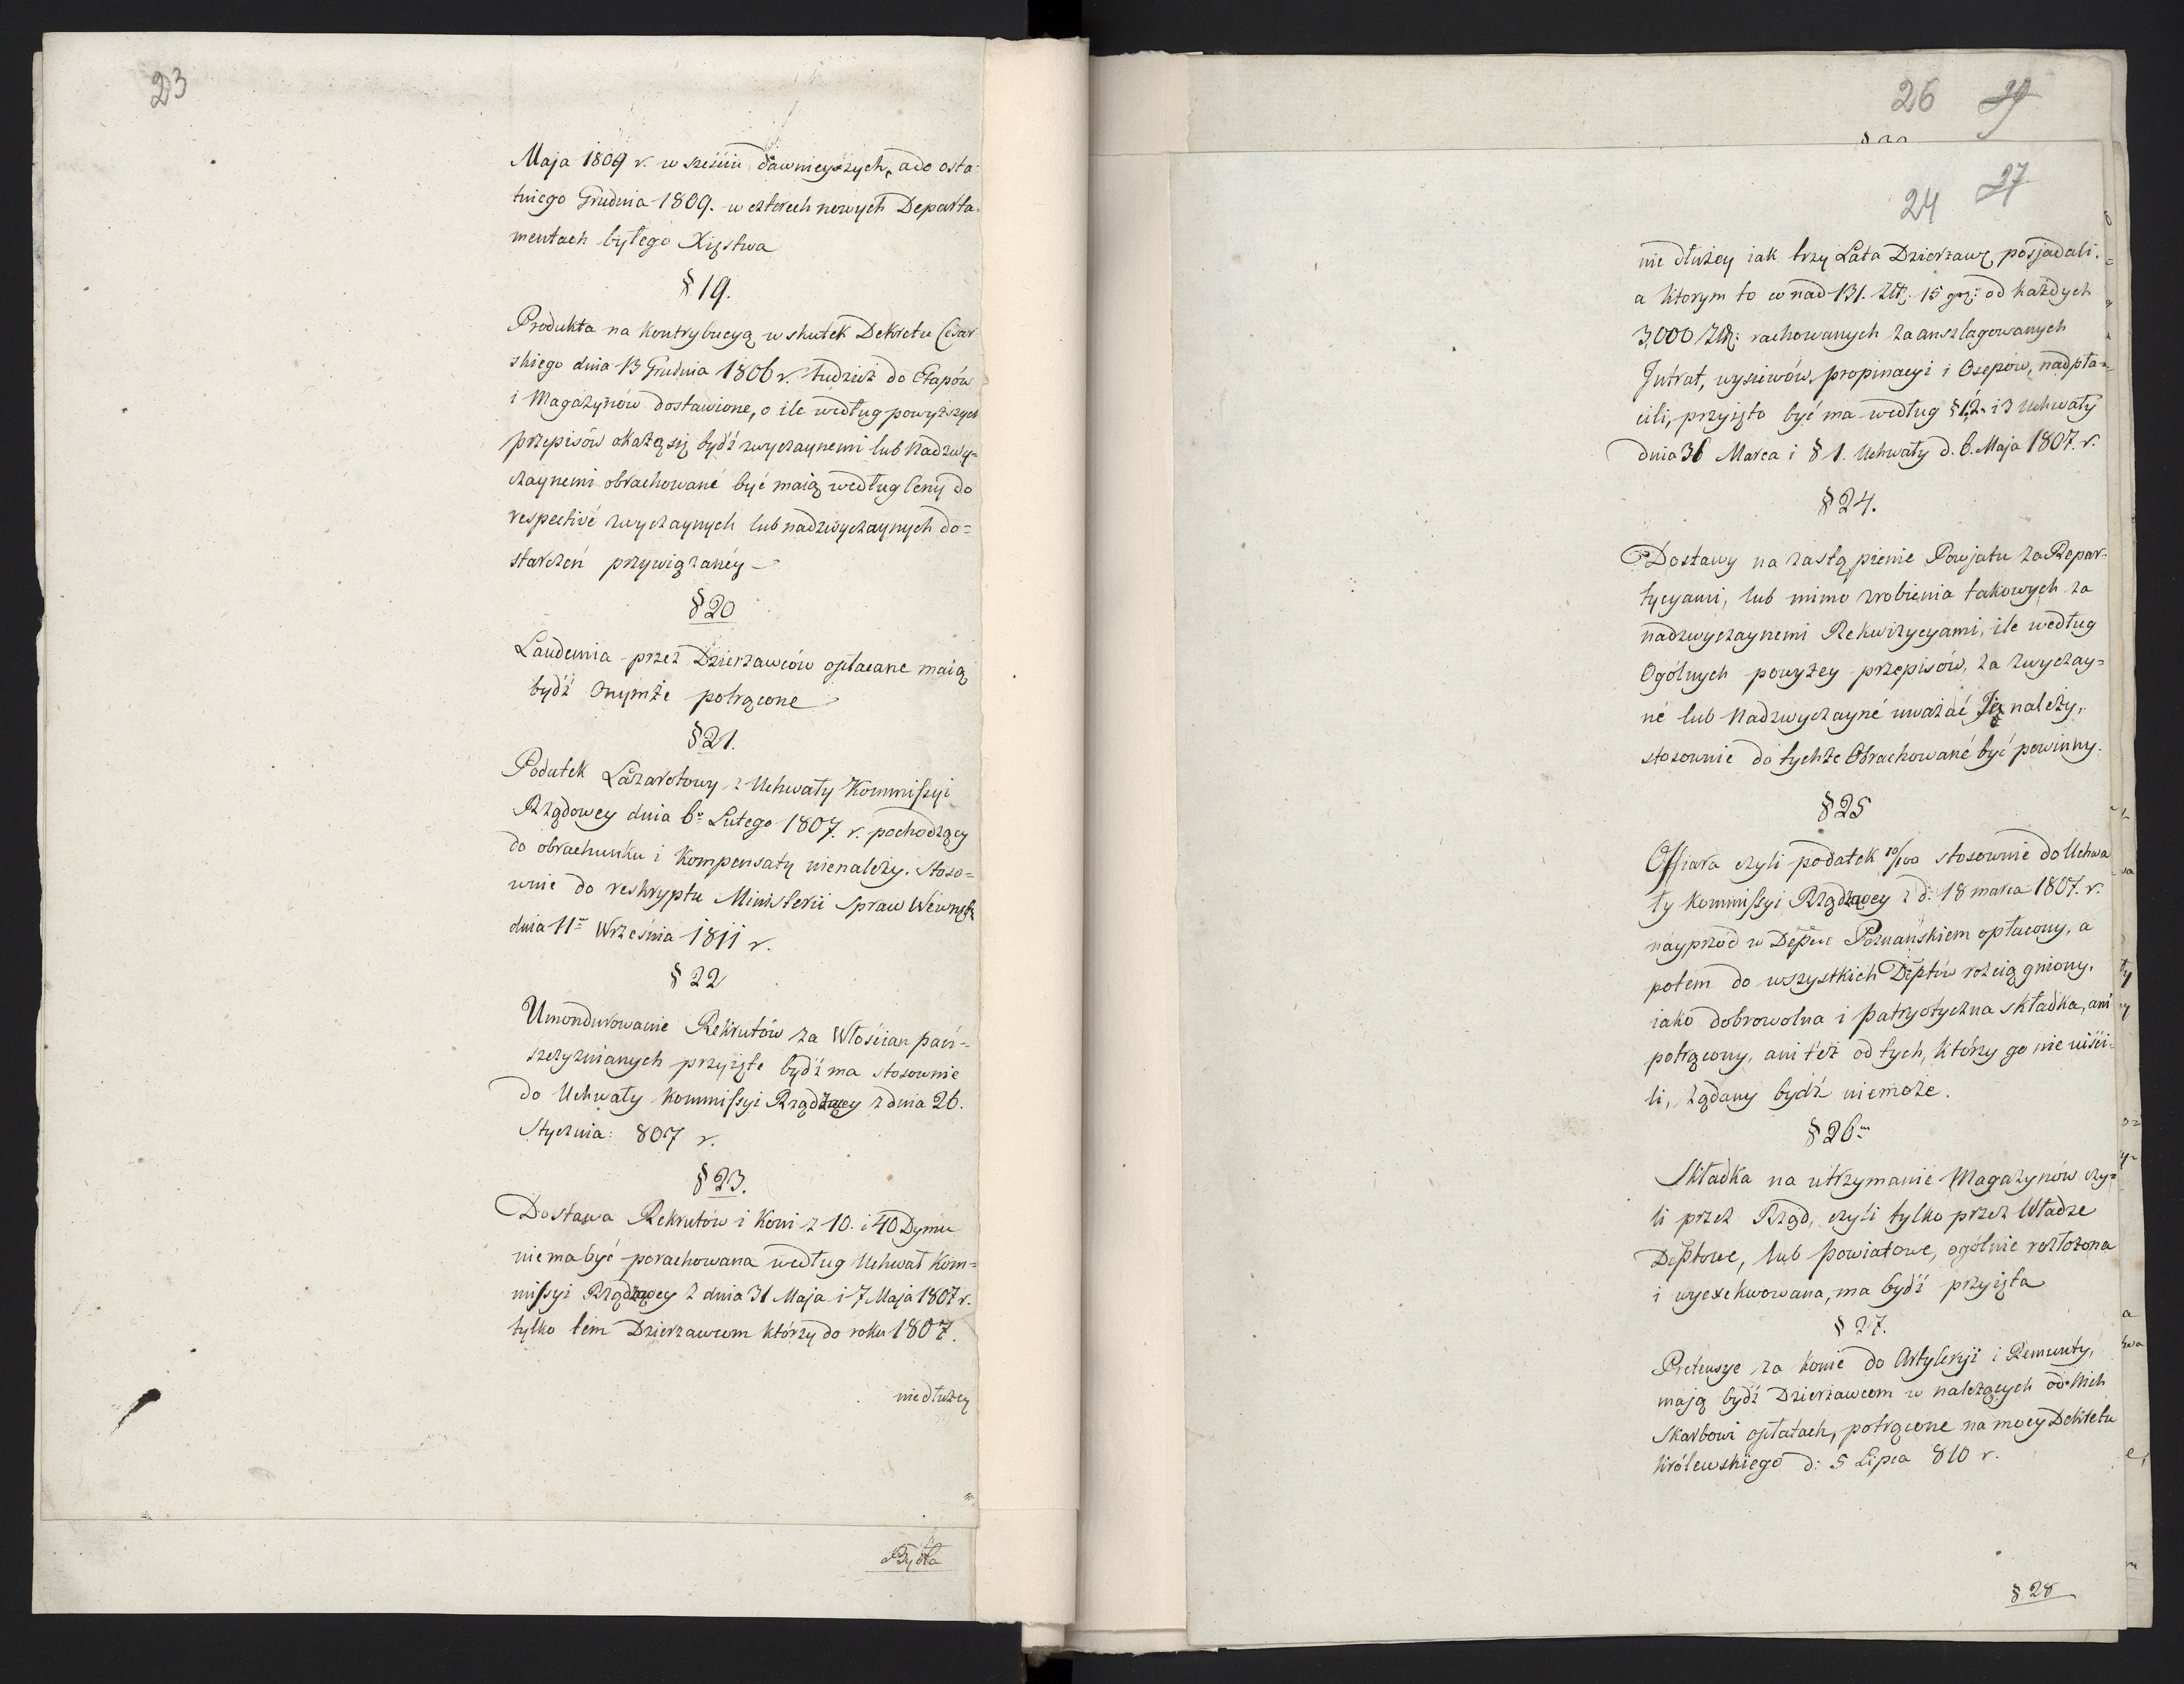 23
Maja 1809 r. w sześciu dawnieyszych, a do osta-
tniego Grudnia 1809. w czterech nowych Departa-
mentach byłego Xięstwa
§ 19.
Produkta na kontrybucyą w skutek Dekretu Cesar-
skiego dnia 13 Grudnia 1806 r. tudzież do Etapów
i Magazynów dostawione, o ile według powyższych
przepisów okażą się bydź zwyczaynemi lub Nadzwy=
czaynemi obrachowané być maią według Ceny do
respectivé zwyczaynych lub nadzwyczaynych do=
starczeń przywiązanéy
§ 20
Laudemia przez Dzierzawców opłacane maią
bydź Onymże potrącone
§ 21.
Podatek Lazaretowy z Uchwały Kommissyi
Rządowey dnia 6º Lutego 1807. r. pochodzący
do obrachunku i kompensaty nienależy. Stoso=
wnie do reskryptu Ministerii Spraw Wewnętz
dnia 11= Września 1811 r.
§ 22
Umondurowanie Rekrutów za Włościan pań-
szczyznianych przyięte bydź ma stosownie
do Uchwały Kommissyi Rządzącey z dnia 26.
Stycznia: 807 r.
§ 23.
Dostawa Rekrutów i Koni z 10. i 40 Dymu
niema być porachowana według Uchwał Kom=
missyi Rządzącey z dnia 31 Maja i 7 Maja 1807 r.
tylko tém Dzierzawcom którzy do roku 1807.
niedłużey
Bydła
26 29
24 27
nie dłużey iak trzy Lata Dzierzawę posjadali.
a ktorym to co nad 131. Złt. 15 gr: od każdych
3,000 Złt: rachowanych za anszlagowanych
Jntrat, wysiewów, propinacyi i Osepów, nadpła=
cili, przyięto być ma według § 1, 2. i 3 Uchwały
dnia 31 Marca i § 1. Uchwały d. 6. Maja 1807. r.
§ 24.
Dostawy na zastąpienie Powjatu za Repar-
tycyami, lub mimo zrobienia takowych za
nadzwyczaynemi Rekwizycyami, ile według
Ogólnych powyżey przepisów, za zwyczay=
né lub Nadzwyczayné uważać Je należy,
stosownie do tychże Obrachowané być powinny.
§ 25
Offiara czyli podatek 10/100 stosownie do Uchwa
ły Kommissyi Rządzącey z d: 18 marca 1807. r.
nayprzód w Depcie Poznańskiem opłacony, a
potém do wszystkich Deptów rozciągniony,
iako dobrowolna i patryotyczna składka, ani
potrącony, ani téż od tych, którzy go nie uiści-
li, żądany bydź niemoże.
§ 26=
Składka na utrzymanie Magazynów czy=
li przez Rząd, czyli tylko przez Władze
Deptowe, lub powiatowe, ogólnie rozłożona
i wyexekwowana, ma bydź przyięta
§ 27.
Pretensye za konie do Artyleryi i Remunty,
mają bydź Dzierzawcom w należących od Nich
Skarbowi opłatach, potrącone na mocy Dekretu
Królewskiego d: 5 Lipca 810 r.
§ 28